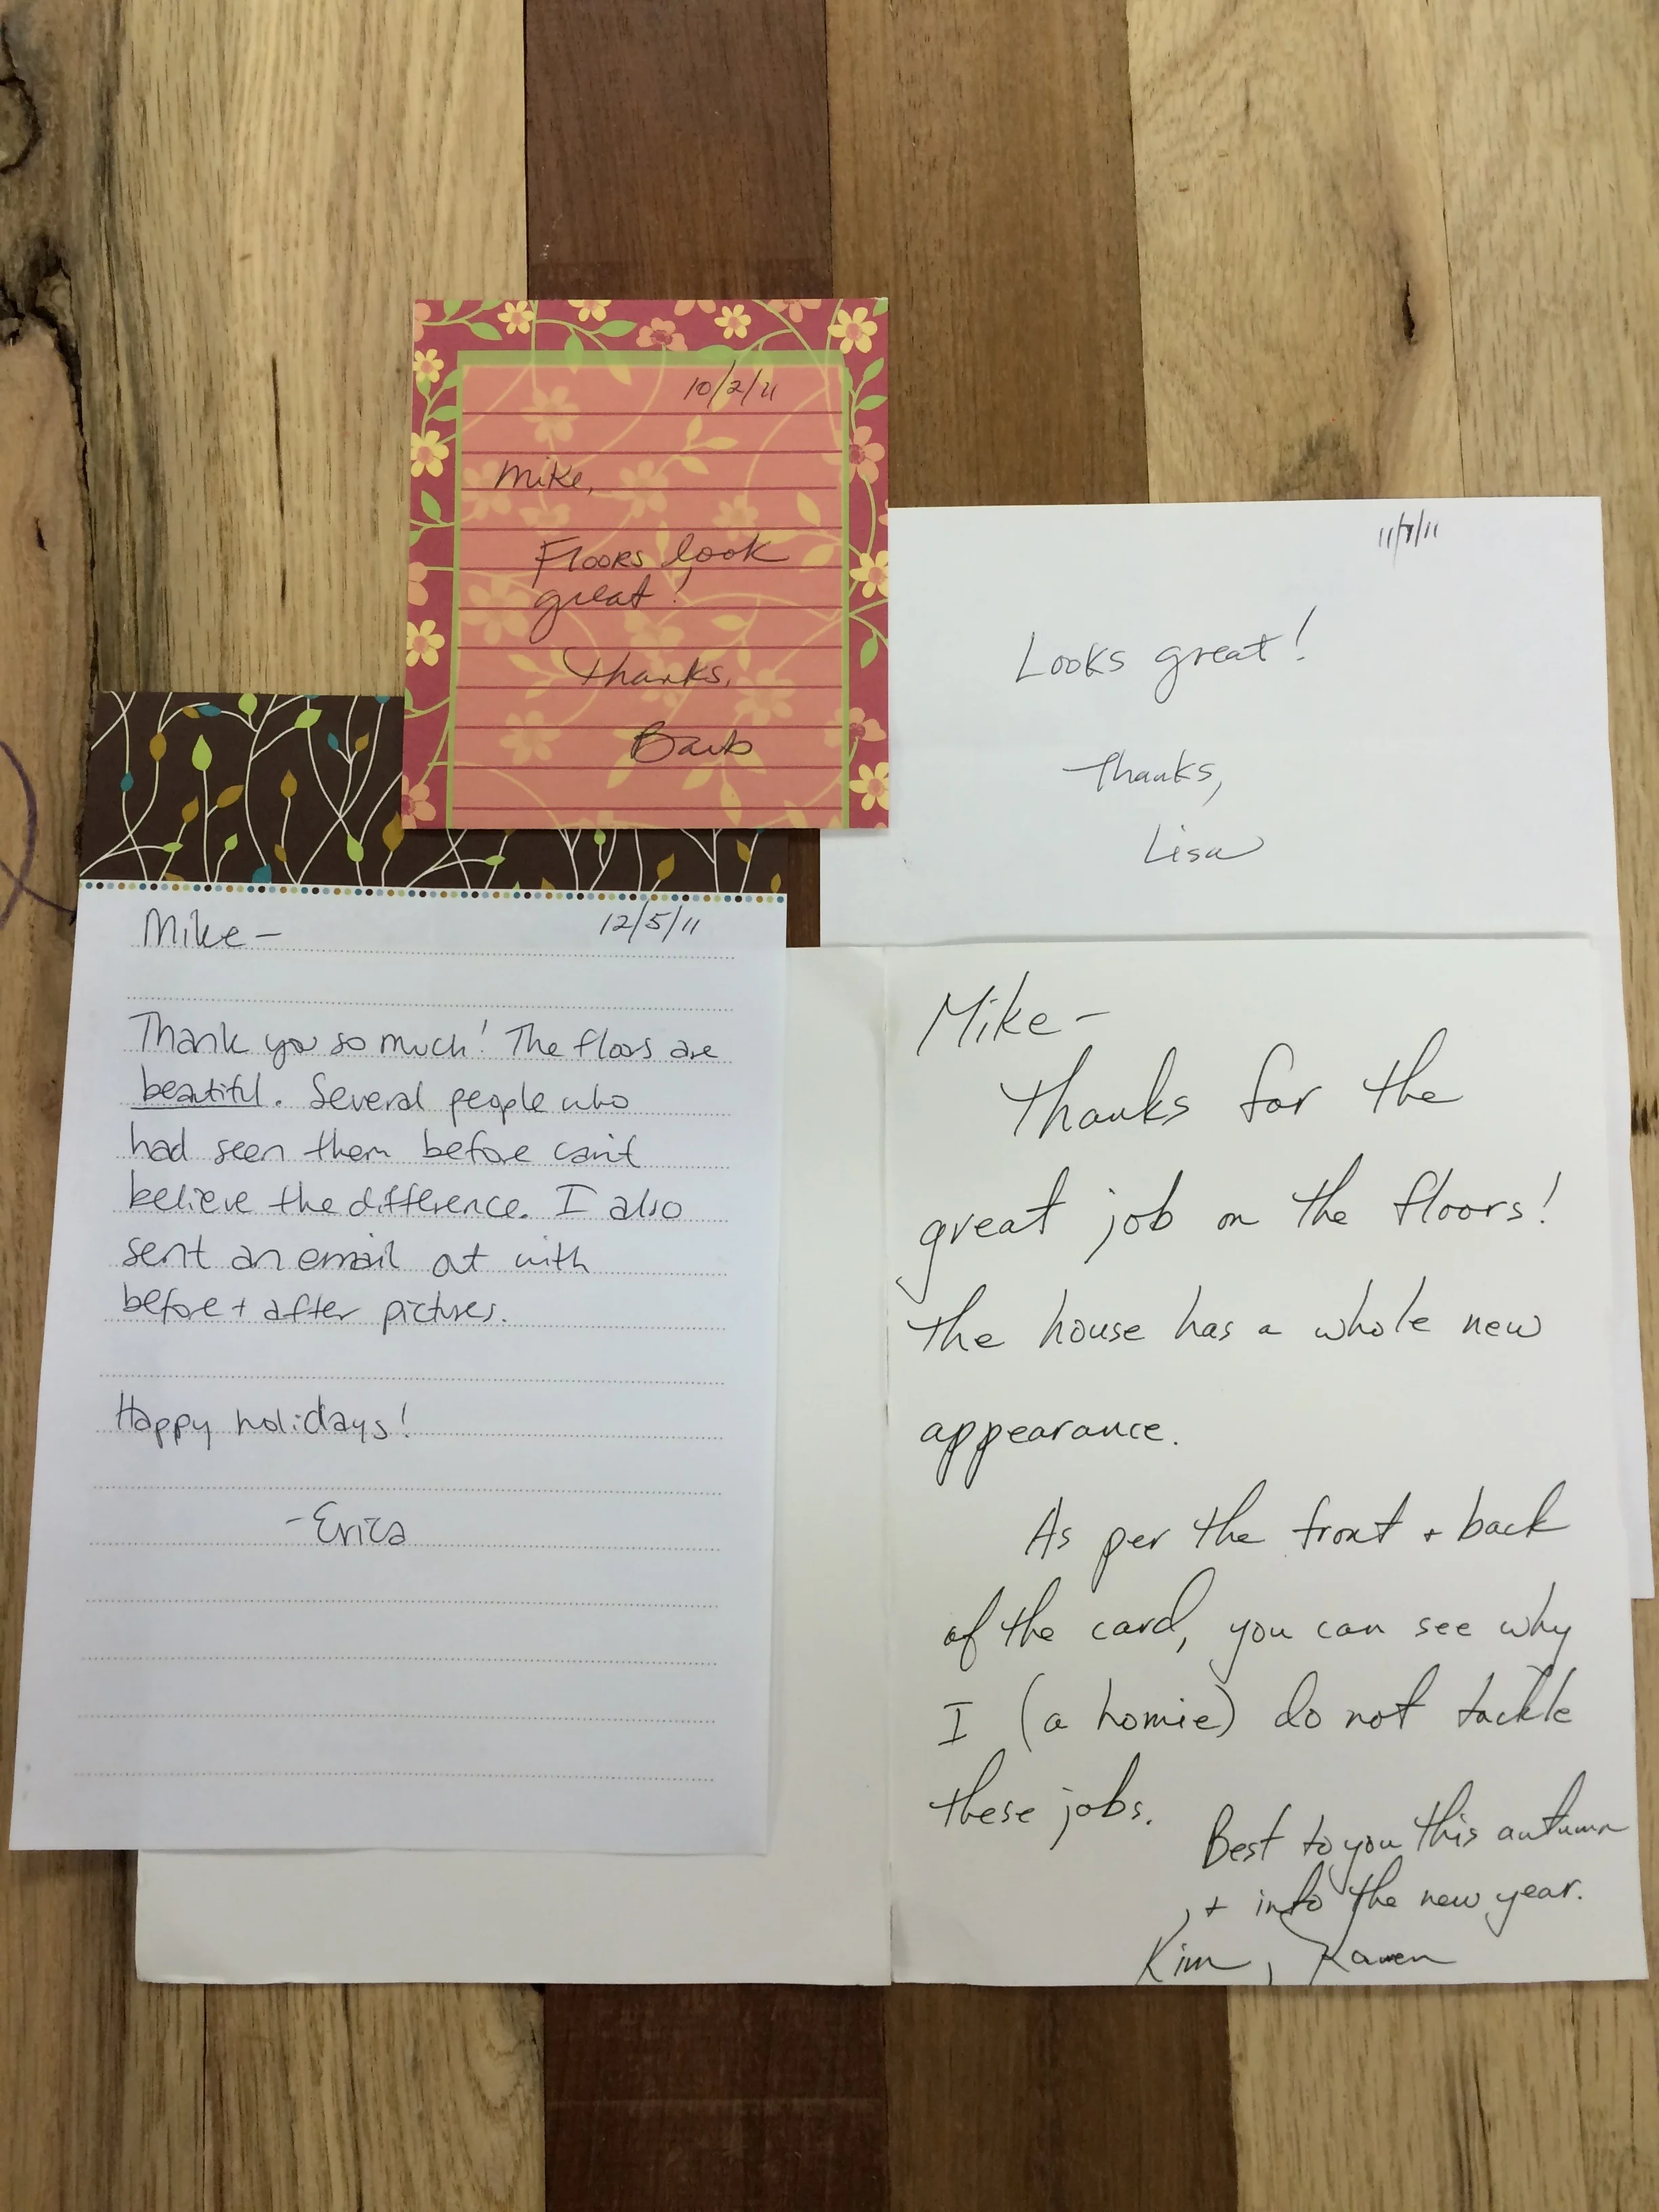 10/2/11
Mike,
Floors look
great!
Thanks,
Barb
11/7/11
Looks great!
Thanks,
Lisa
Mike- 12/5/11
Thank you so much! The floors are
beautiful. Several people who
had seen them before can't
believe the difference. I also
sent an email out with
before + after pictures.
Happy holidays!
-Erica
Mike-
Thanks for the
great job on the floors!
The house has a whole new
appearance.
As per the front + back
of the card, you can see why
I (a homie) do not tackle
these jobs.
Best to you this autumn
+ into the new year.
Kim, Karen